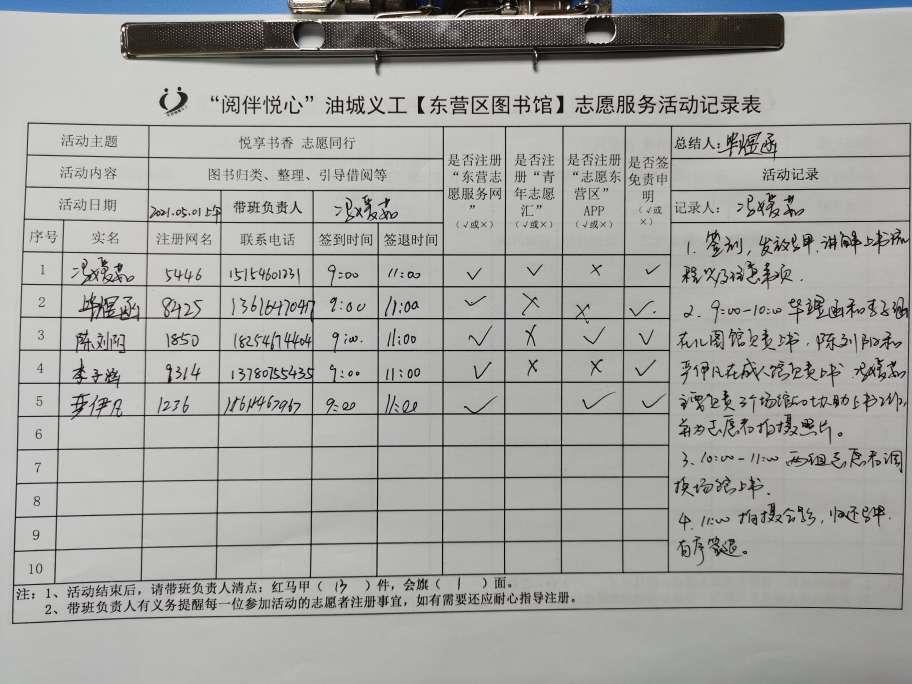 “阅伴悦心”油城义工【东营区图书馆】志愿服务活动记录表
活动主题 悦享书香 志愿同行 是否注册“东营志愿服务网”（√或×） 是否注册“青年志愿汇”（√或×） 是否注册“志愿东营区”APP（√或×） 是否签免责申明（√或×） 总结人：毕煜函
活动内容 图书归类、整理、引导借阅等 活动记录
活动日期 2021.05.01上午 带班负责人 冯媛茹 记录人：冯媛茹
序号 实名 注册网名 联系电话 签到时间 签退时间
1 冯媛茹 5446 15154601231 9:00 11:00 √ √ × √
2 毕煜函 8425 13616470417 9:00 11:00 √ × × √
3 陈刘阳 1850 18254674404 9:00 11:00 √ × √ √
4 李子涵 9314 13780755435 9:00 11:00 √ × × √
5 伊凡 1236 9:00 11:00 √ √ √
6
7
8
9
10
1. 签到，发放马甲，讲解上书流
程以及注意事项.
2. 9:00-10:00 毕煜函和李子涵
在儿图馆负责上书，陈刘阳和
伊凡在成人馆负责上书 冯媛茹
主要负责 场馆 协助上书工作，
并为志愿者拍摄照片。
3. 10:00-11:00 两组志愿者调
换场馆上书.
4. 11:00 拍摄合影，归还马甲.
有序签退。
注：1、活动结束后，请带班负责人清点：红马甲（ 13 ）件，会旗（ 1 ）面。
2、带班负责人有义务提醒每一位参加活动的志愿者注册事宜，如有需要还应耐心指导注册。